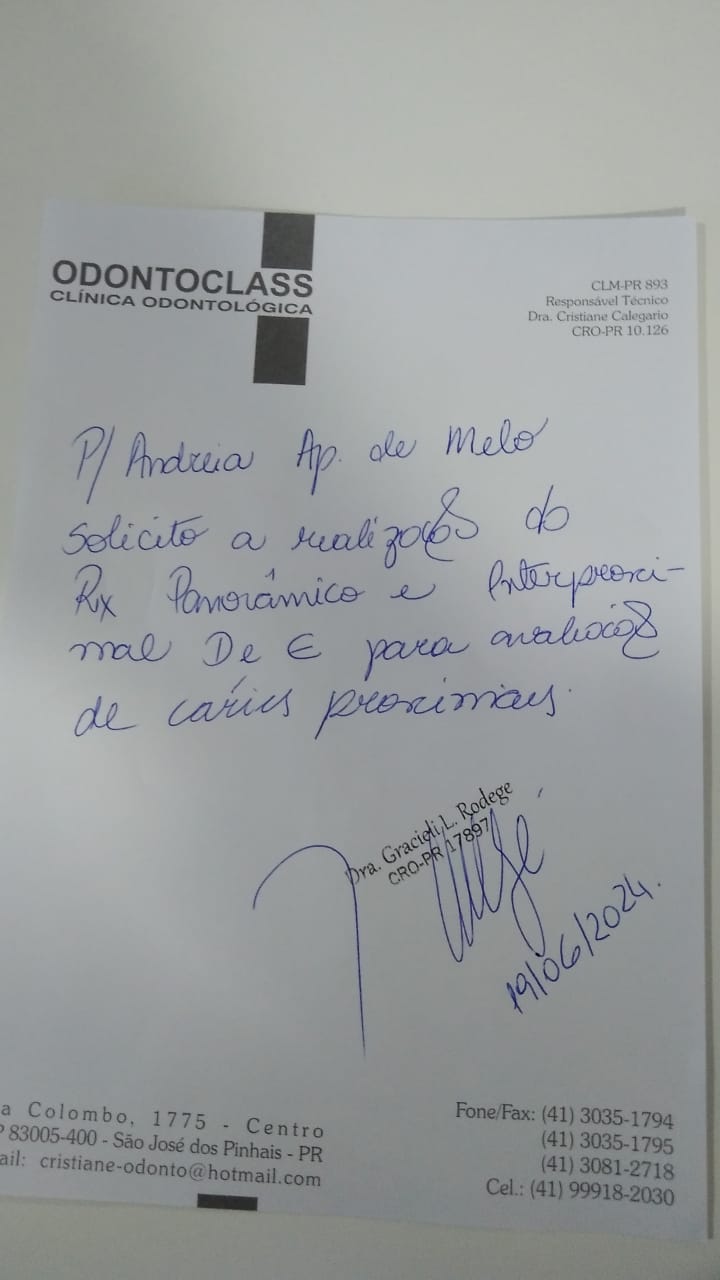 ODONTOCLASS
CLÍNICA ODONTOLÓGICA
CLM-PR 893
Responsável Técnico
Dra. Cristiane Calegario
CRO-PR 10.126
P/ Andreia Ap. de Melo
Solicito a realização do
Rx Panorâmico e Interproxi-
mal D e E para avaliação
de cáries proximais.
Dra. Gracieli L. Rodege
CRO-PR 17897
19/06/2024.
a Colombo, 1775 - Centro
P 83005-400 - São José dos Pinhais - PR
ail: cristiane-odonto@hotmail.com
Fone/Fax: (41) 3035-1794
(41) 3035-1795
(41) 3081-2718
Cel.: (41) 99918-2030